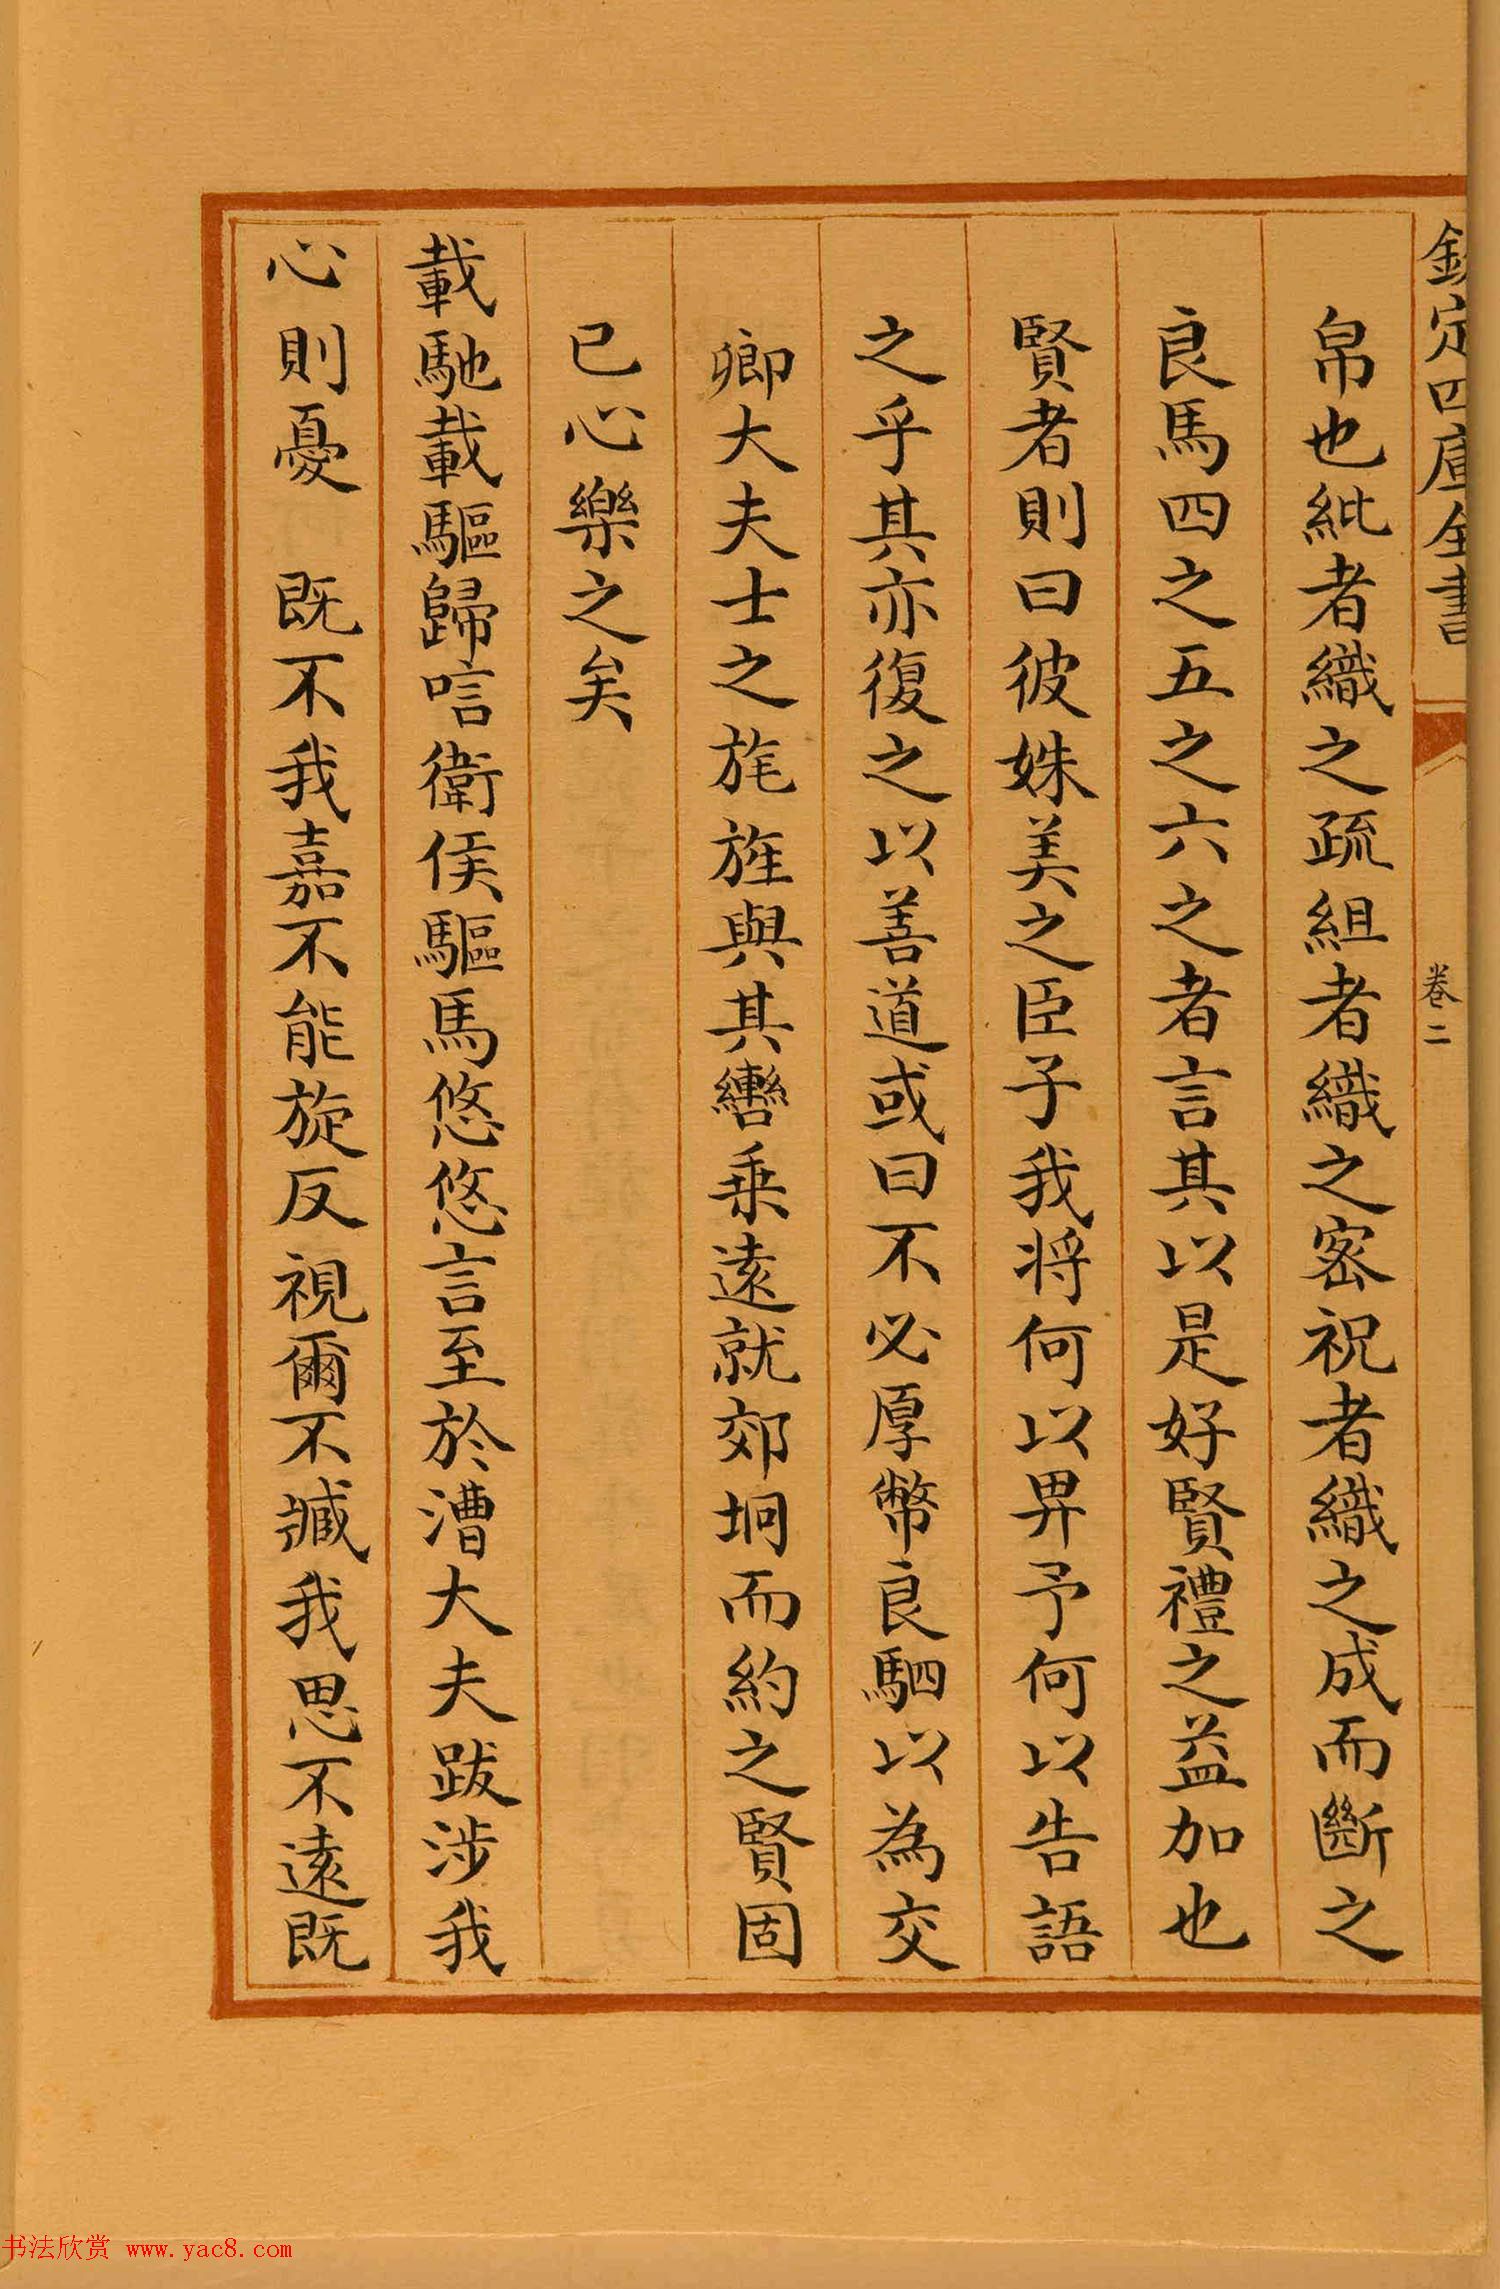 欽定四庫全書
卷二
帛也紕者織之疏組者織之宻祝者織之成而斷之
良馬四之五之六之者言其以是好賢禮之益加也
賢者則曰彼姝美之臣子我将何以畀予何以告語
之乎其亦復之以善道或曰不必厚幣良駟以為交
卿大夫士之旄旌與其轡乗逺就郊坰而約之賢固
已心樂之矣
載馳載驅歸唁衛侯驅馬悠悠言至於漕大夫跋涉我
心則憂 既不我嘉不能旋反視爾不臧我思不逺既
书法欣赏 www.yac8.com